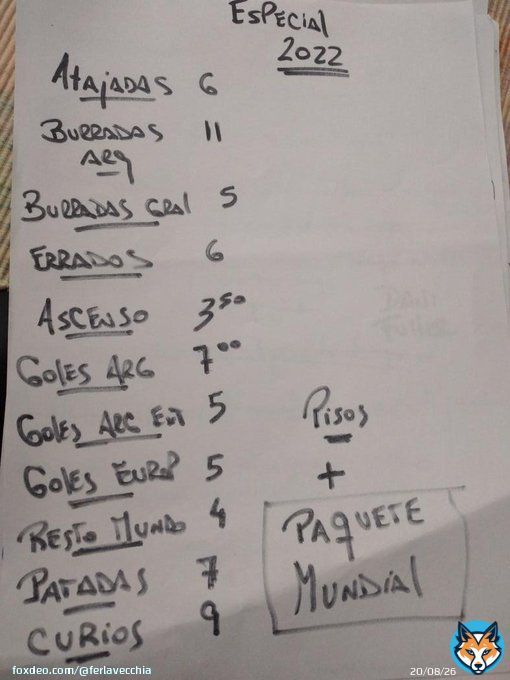 ESPECIAL
2022
ATAJADAS 6
BURRADAS 11
ARG
BURRADAS GRAL 5
ERRADOS 6
ASCENSO 3 50
GOLES ARG 7 00
GOLES ARG EXT 5
GOLES EUROP 5
RESTO MUNDO 4
PATADAS 7
CURIOS 9
PISOS
+
PAQUETE
MUNDIAL
foxdeo.com/@ferlavecchia
20/08/26